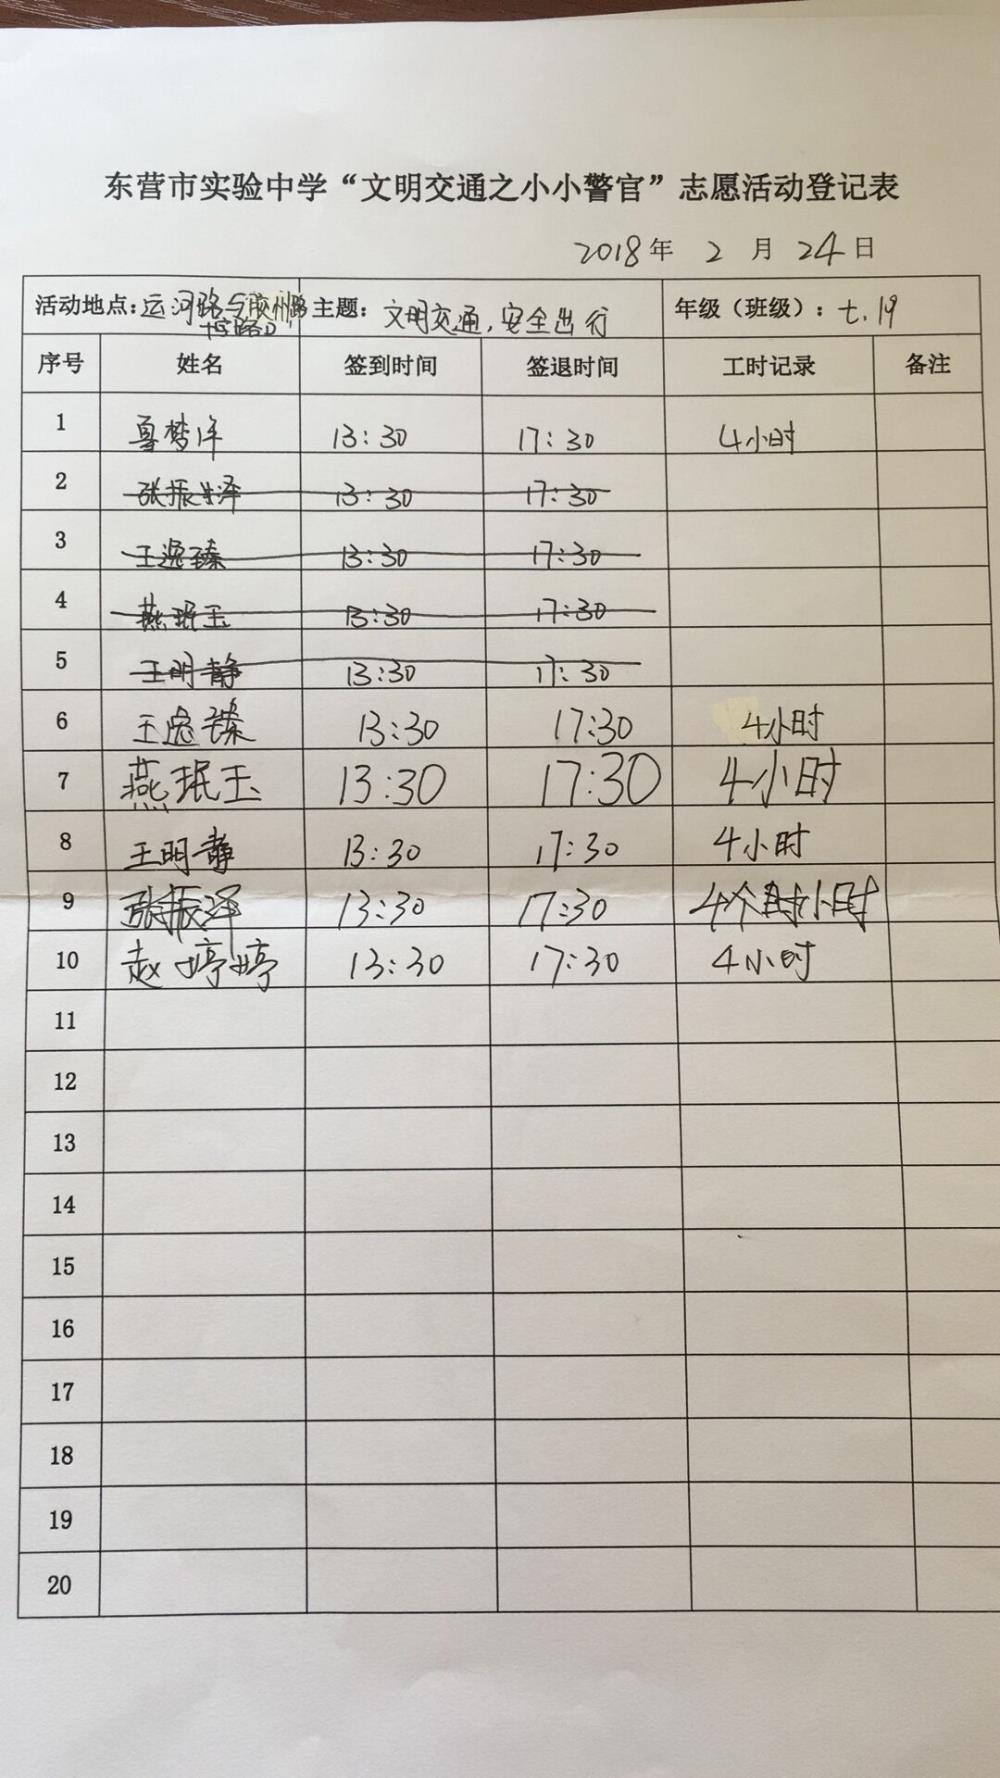 东营市实验中学“文明交通之小小警官”志愿活动登记表
2018年 2 月 24日
活动地点:运河路与胶州路十字路口 主题: 文明交通,安全出行 年级（班级）: 七.19
序号 姓名 签到时间 签退时间 工时记录 备注
1 梦洋 13:30 17:30 4小时
2 张振泽 13:30 17:30
3 王逸臻 13:30 17:30
4 燕珉玉 13:30 17:30
5 王明静 13:30 17:30
6 王逸臻 13:30 17:30 4小时
7 燕珉玉 13:30 17:30 4小时
8 王明静 13:30 17:30 4小时
9 张振泽 13:30 17:30 4个小时
10 赵婷婷 13:30 17:30 4小时
11
12
13
14
15
16
17
18
19
20